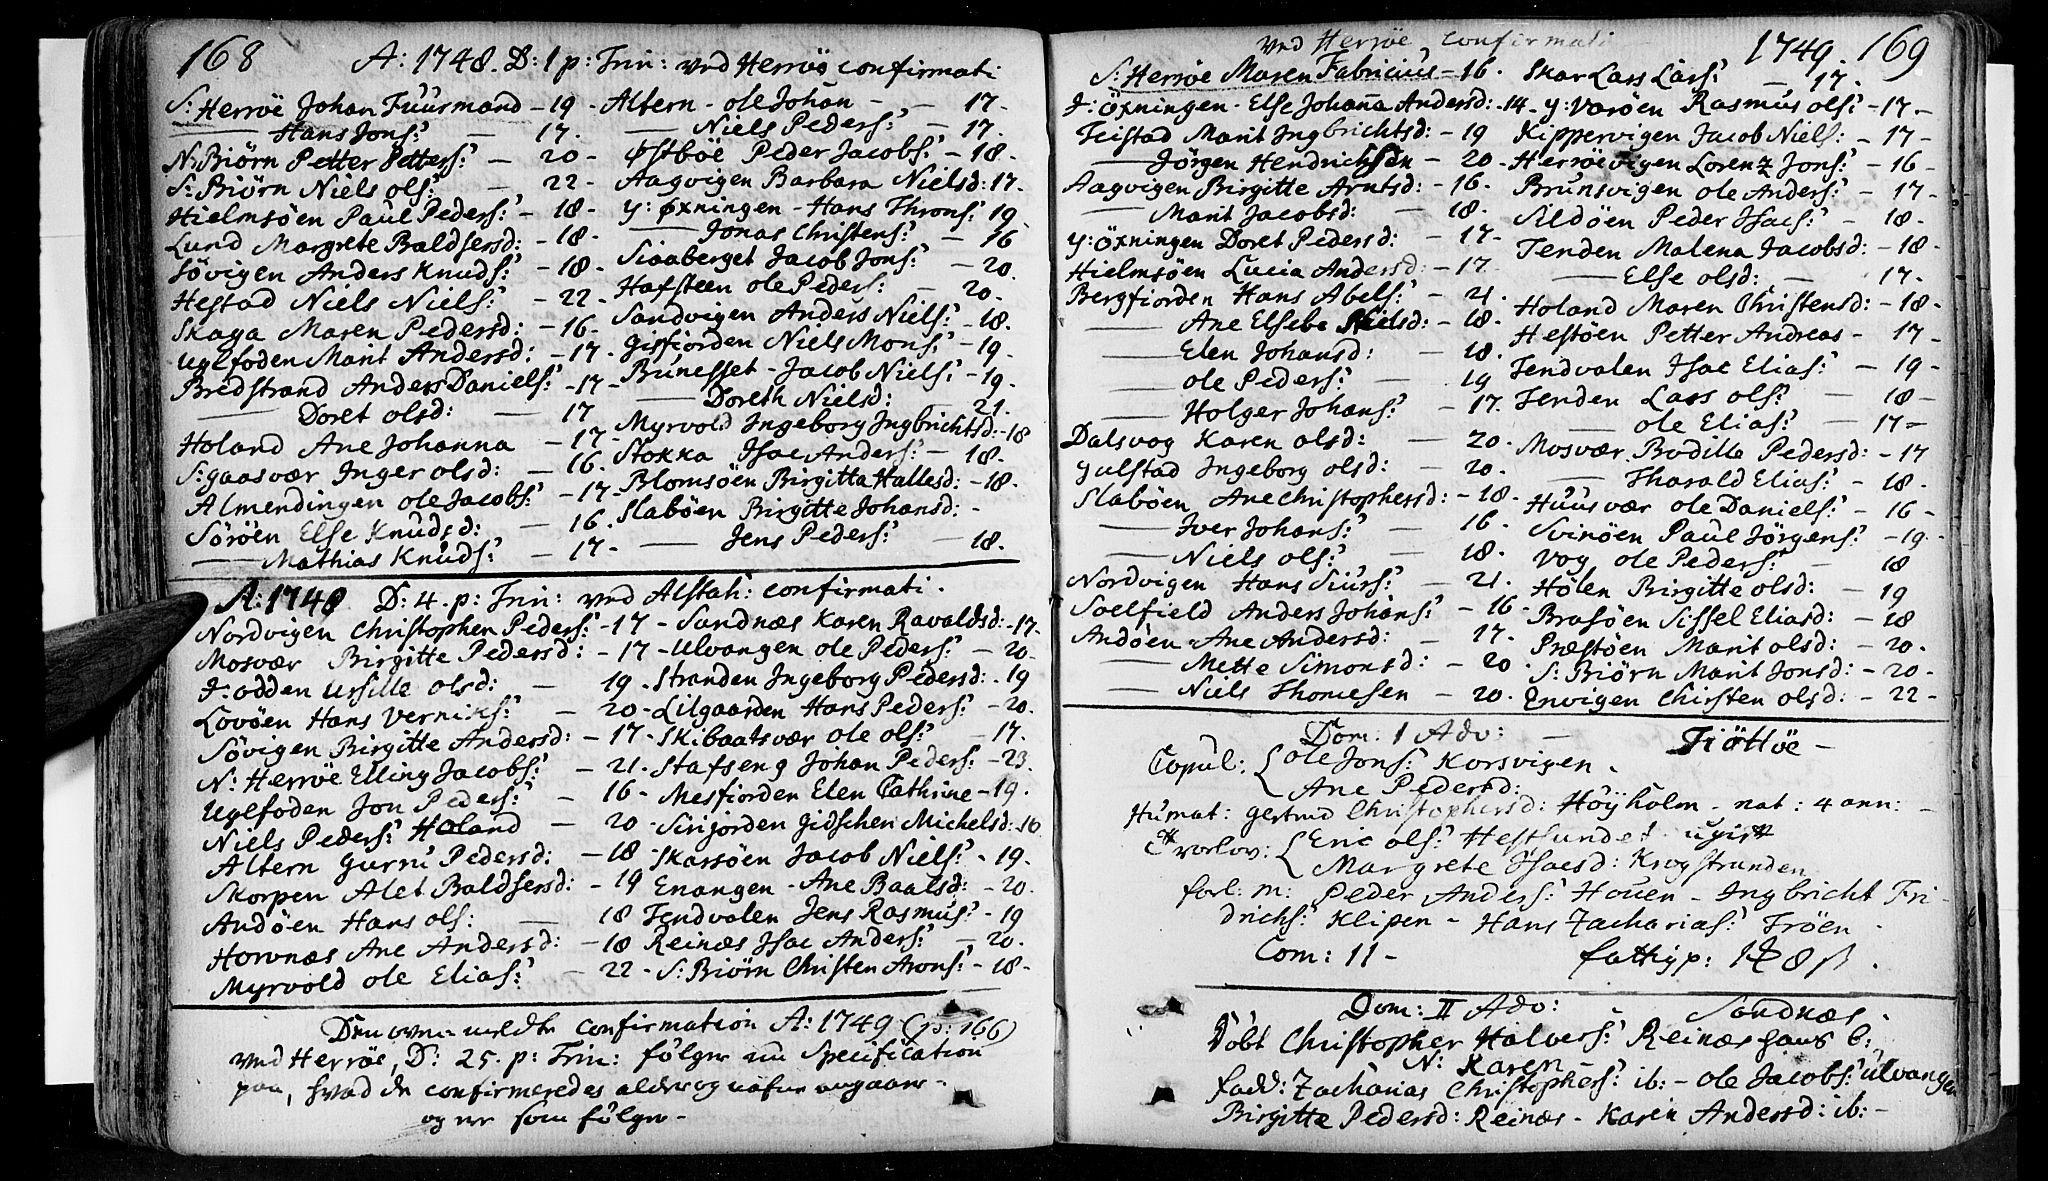 168
A: 1748. D: 1 p: Trin: ved Herröe confirmati
S: Herröe Johan Fuurmand - 19 -
Hans Jons: - 17.
N: Biörn Petter Petters: - 20 -
S: Biörn Niels ols: - 22 -
Hielmsöen Paul Peders: - 18 -
Lund Margrete Baldsersd: - 18 -
Sövigen Anders Knuds: - 18 -
Hestad Niels Niels: - 22 -
Skaga Maren Pedersd: - 16 -
Uglfoden Marit Andersd: - 17.
Bredstrand Anders Daniels: - 17 -
Doret olsd: - 17
Holand Ane Johanna - 17 -
S: gaasvær Inger olsd: - 16.
Almendingen ole Jacobs: - 17 -
Söröen Else Knudsd: - 16.
Mathias Knuds: - 17 -
Altern - ole Johan - - 17 -
Niels Peders: - 17.
Østböe Peder Jacobs: - 18 -
Aagvigen Barbara Nielsd: 17.
y: øxningen - Hans Throns: 19.
Jonas Christens: - 16
Siaaberget Jacob Jons: - 20.
Hafsteen ole Peders: - 20 -
Sandvigen Anders Niels: - 18.
Gisfiorden Niels Mons: - 19 -
Bunesset - Jacob Niels: - 19 -
Doreth Nielsd: - 21.
Myrvold Ingeborg Ingbrichtsd: - 18
Stokka Isac Anders: - 18.
Blomsöen Birgitta Hallesd: - 18.
Slaböen Birgitte Johansd: -
Jens Peders: - 18.
A: 1748 D: 4. p: Trin: ved Alstah: confirmati.
Nordvigen Christopher Peders: - 17 -
Mosvær Birgitte Pedersd: - 17 -
J: odden Ursille olsd: - 19 -
Lovöen Hans Verniks: - 20 -
Sövigen Birgitte Andersd: - 17 -
N: Herröe Elling Jacobs: - 21.
Uglfoden Jon Peders: - 16 -
Niels Peders: Holand - 20 -
Altern Gurru Pedersd: - 18 -
Skorpen Alet Baldsersd: - 19
Andöen Hans ols: - 18
Hornnæs Ane Andersd: - 18
Myrvold ole Elias: - 22 -
Sandnæs Karen Ravaldsd: - 17.
Ulvangen ole Peders: - 20.
Stranden Ingeborg Pedersd: - 19
Lilgaarden Hans Peders: - 20.
Skibaatsvær ole ols: - 17.
Stafseng Johan Peders: - 23.
Mesfiorden Elen Cathrine - 19.
Sirijorden Gidschen Michelsd: 16
Skarsöen Jacob Niels: - 19.
Enangen - Ane Baalsd: - 20.
Tendvalen Jens Rasmus: - 19
Reinæs Isac Anders: - 20.
S: Biörn Christen Arons: - 18 -
Den oven meldte confirmation A: 1749 (p: 166)
ved Herröe, D: 25. p: Trin: fölger nu Specification
paa, hvad de confirmeredes alder og nafne angaar -
og er som fölger -
169
1749.
ved Herröe, confirmati
S: Herröe Maren Fabricius - 16.
J: öxningen - Else Johanna Andersd: - 14 -
Teistad Marit Ingbrichtsd: - 19
Jörgen Hendrichsen - 20 -
Aagvigen Birgitte Arntsd: - 16.
Marit Jacobsd: - 18.
y: öxningen Doret Pedersd: - 17 -
Hielmsöen Lucia Andersd: - 17.
Bergfiorden Hans Abels: - 21.
Ane Elsebe Nielsd: - 18.
Elen Johansd: - 18.
ole Peders: - 19
Holger Johans: - 17.
Dalsvog Karen olsd: - 20.
Gulstad Ingeborg olsd: - 20.
Slaböen Ane Christophersd: - 18.
Iver Johans: - 16.
Niels ols: - 18.
Nordvigen Hans Siurs: - 21.
Soelfield Anders Johans: - 16 -
Andöen Ane Andersd: - 17.
Mette Simonsd: - 20
Niels Thomesen - 20.
Skar Lars Lars: - 17.
y: Varöen Rasmus ols: - 17 -
Kippervigen Jacob Niels: - 17 -
Herröevigen Lorenz Jons: - 16 -
Brunsvigen ole Anders: - 17 -
Sildöen Peder Isacs: - 18 -
Tenden Malena Jacobsd: - 18 -
Else olsd: - 17 -
Holand Maren Christensd: - 18 -
Hestöen Petter Andreas - 17 -
Tendvalen Isac Elias: - 19 -
Tenden Lars ols: - 18 -
ole Elias: - 17 -
Mosvær Bodille Pedersd: - 17
Tharald Elias: - 18.
Huusvær ole Daniels: - 16 -
Svinöen Paul Jörgens: - 19 -
Vog ole Peders: - 18
Hölen Birgitte olsd: - 19
Brasöen Sissel Eliasd: - 18
Præstöen Marit olsd: - 20.
S: Biörn Marit Jonsd: - 20 -
Envigen Chirsten olsd: - 22 -
Dom: 1 Adv: - Tiöttöe -
Copul: { Ole Jons: Korsvigen.
Ane Pedersd:
Humat: Gertrud Christophersd: Höyholm - nat: 4 ann: -
Trorlov: { Eric ols: Hestsundet ugift
Margrete Isacsd: Krogstranden
forl: m: Peder Anders: Houen - Ingbricht Fri-
drichs: Klipen - Hans Zacharias: Tröen.
Com: 11 - fattigp:
Dom: II Adv: Sandnæs.
Döbt Christopher Halvers: Reinæs hans b:
N: Karen -
fadd: Zacharias Christophers: ib: - ole Jacobs: Ulvangen
Birgitte Pedersd: Reinæs - Karen Andersd: ib: -